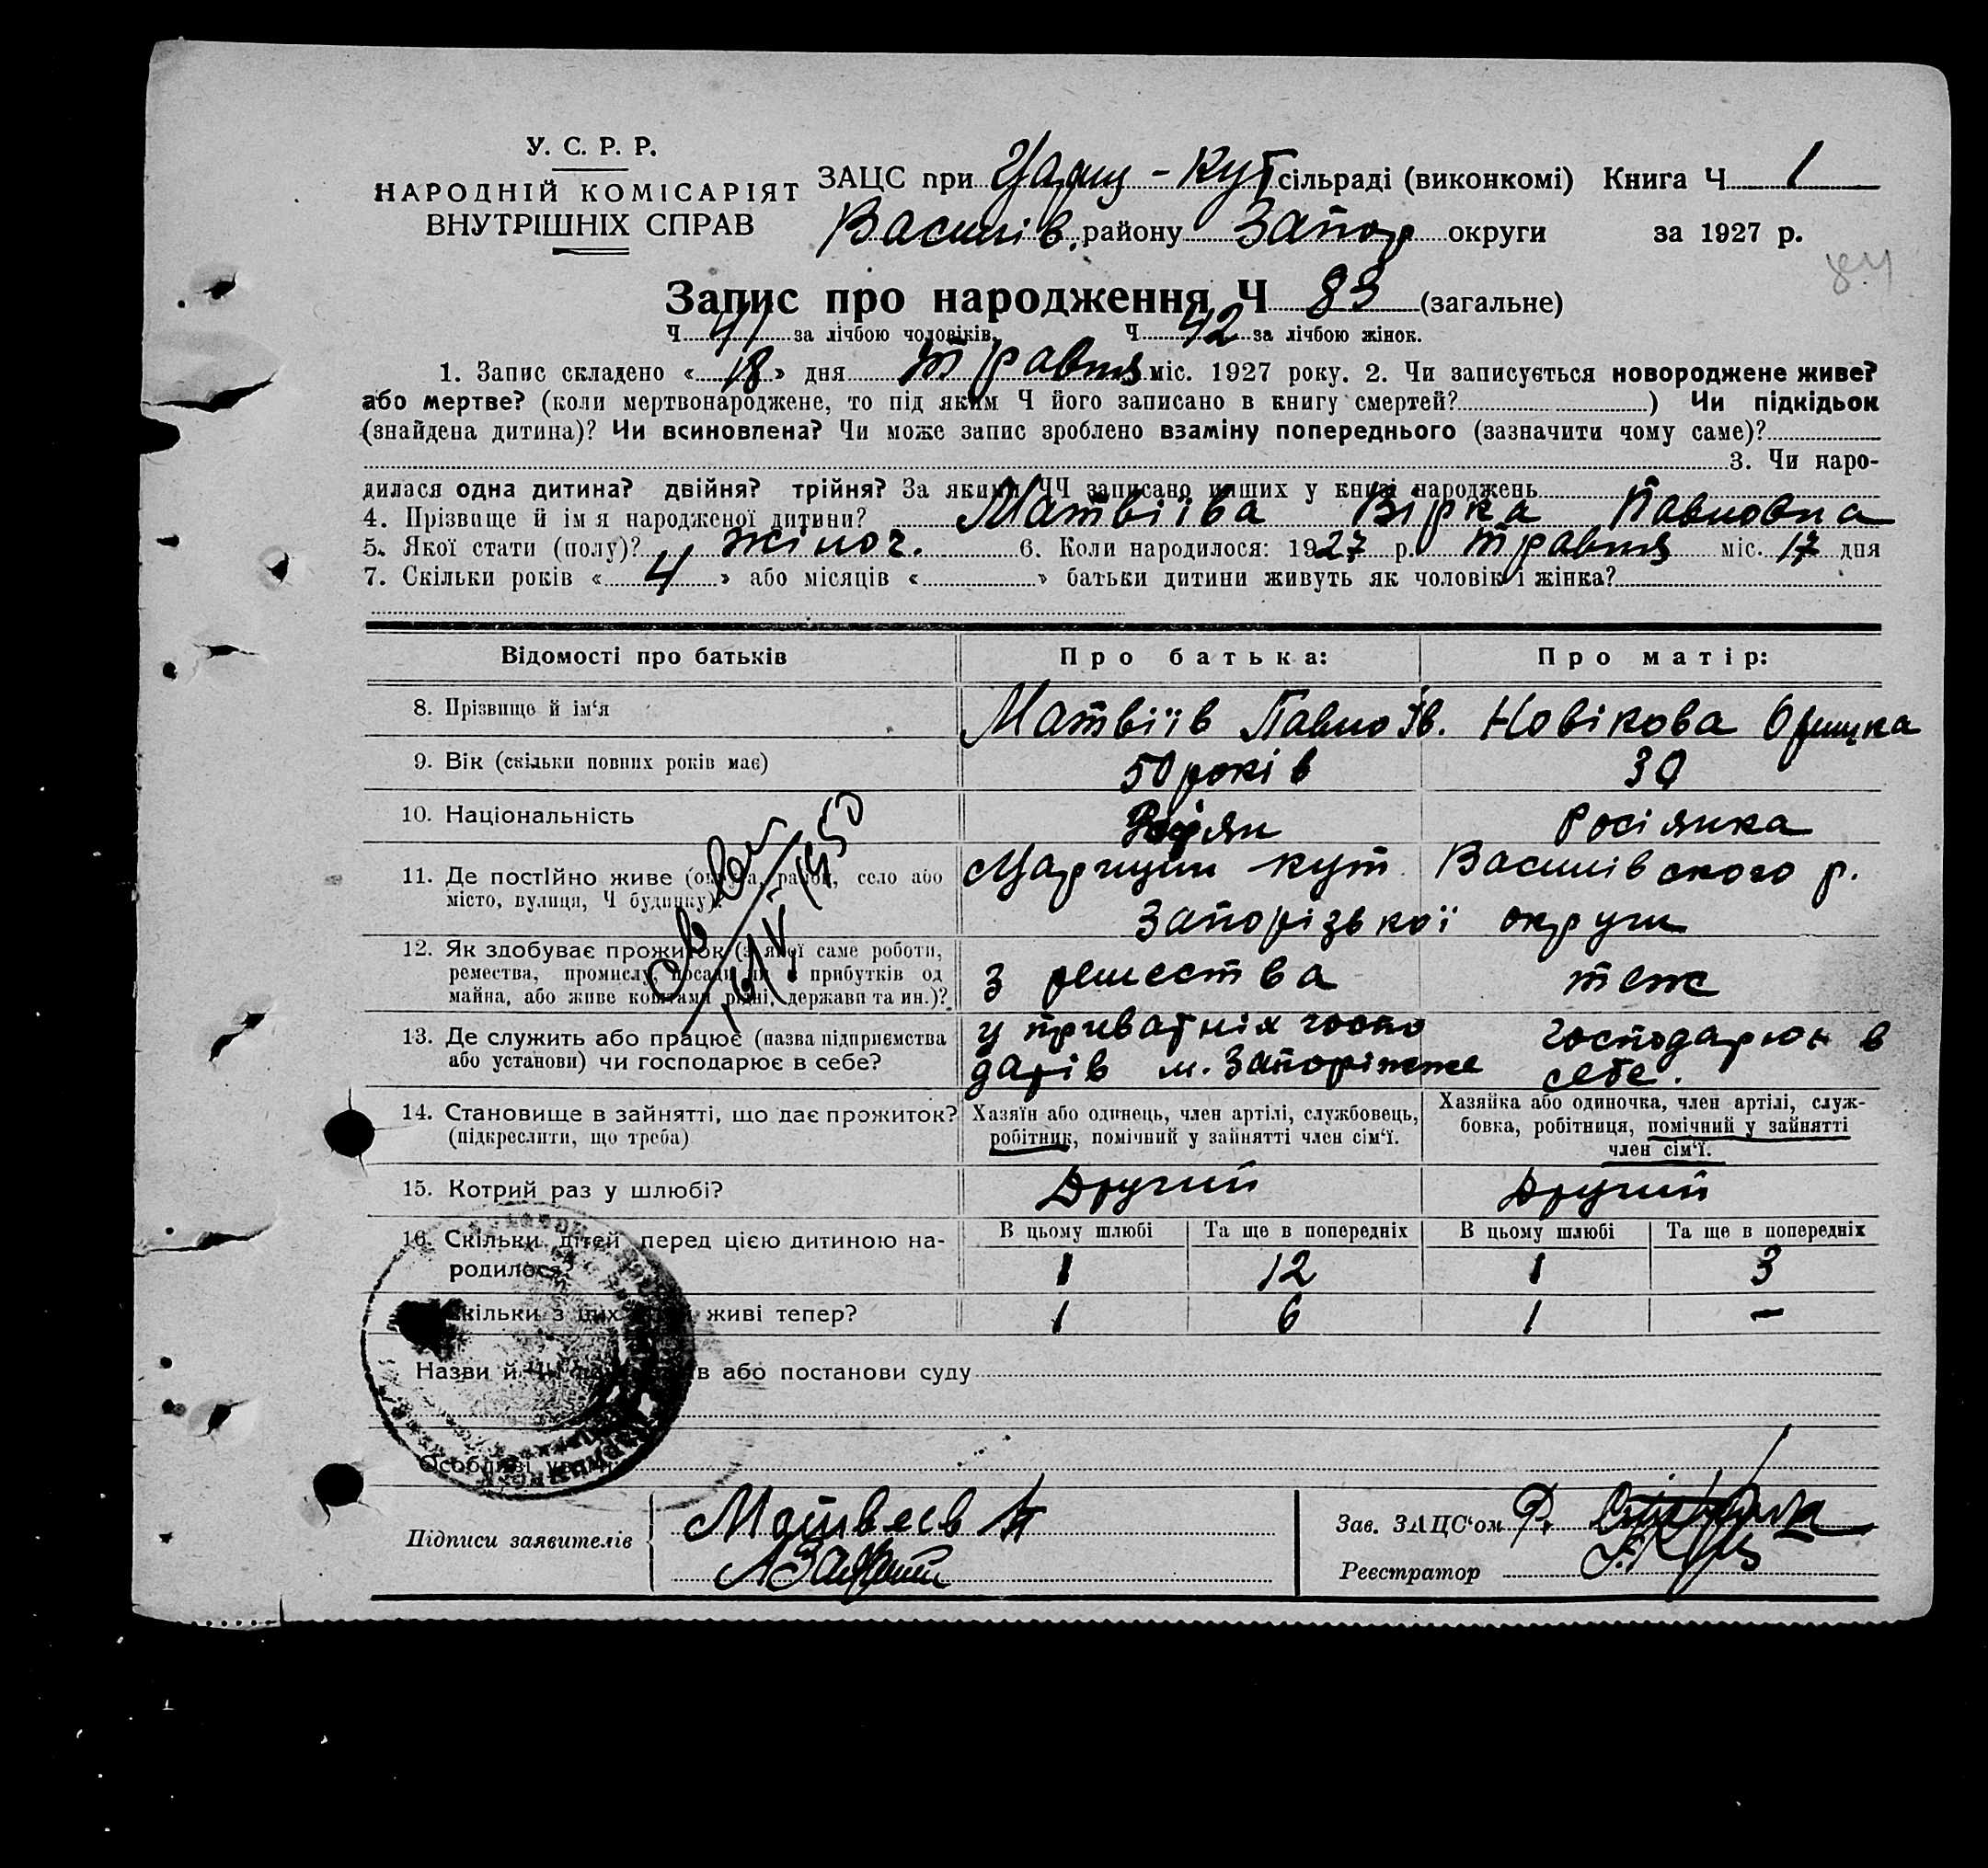 У. С. Р. Р.
НАРОДНІЙ КОМІСАРІЯТ
ВНУТРІШНІХ СПРАВ
ЗАЦС при Цариц-Кут сільраді (виконкомі) Книга Ч 1
Василів. району Запор округи за 1927 р.
84
Запис про народження Ч 83 (загальне)
Ч 41 за лічбою чоловіків. Ч 42 за лічбою жінок.
1. Запис складено «18» дня травня міс. 1927 року. 2. Чи записується новороджене живе?
або мертве? (коли мертвонароджене, то під яким Ч його записано в книгу смертей? ) Чи підкідьок
(знайдена дитина)? Чи всиновлена? Чи може запис зроблено взаміну попереднього (зазначити чому саме)?
3. Чи наро-
дилася одна дитина? двійня? трійня? За якими ЧЧ записано инших у книзі народжень
4. Прізвище й ім'я народженої дитини? Матвіїва Вірка Павловна
5. Якої стати (полу)? жіноч. 6. Коли народилося: 1927 р. травня міс. 17 дня
7. Скільки років «4» або місяців « » батьки дитини живуть як чоловік і жінка?
Відомості про батьків Про батька: Про матір:
8. Прізвище й ім'я Матвіїв Павло Ів. Новікова Оришка
9. Вік (скільки повних років має) 50 років 30
10. Національність Росіянка
11. Де постійно живе (округа, район, село або Царицин кут Василівского р.
місто, вулиця, Ч будинку). Запорізької округи
12. Як здобуває прожиток (з якої саме роботи,
ремества, промислу, посади чи з прибутків од з ремества теж
майна, або живе коштами рідні, держави та ин.)?
13. Де служить або працює (назва підприємства у приватніх госпо господарює в
або установи) чи господарює в себе? дарів м. Запоріжже себе.
14. Становище в зайнятті, що дає прожиток? Хазяїн або одинець, член артілі, службовець, Хазяйка або одиночка, член артілі, служ-
(підкреслити, що треба) робітник, помічний у зайнятті член сім'ї. бовка, робітниця, помічний у зайнятті
член сім'ї.
15. Котрий раз у шлюбі? Другий Другий
16. Скільки дітей перед цією дитиною на- В цьому шлюбі Та ще в попередніх В цьому шлюбі Та ще в попередніх
родилося? 1 12 1 3
Скільки з цих живі тепер? 1 6 1 —
Назви й або постанови суду
Особливі уваги
Підписи заявителів Матвеев П
Зав. ЗАЦС'ом
Реєстратор